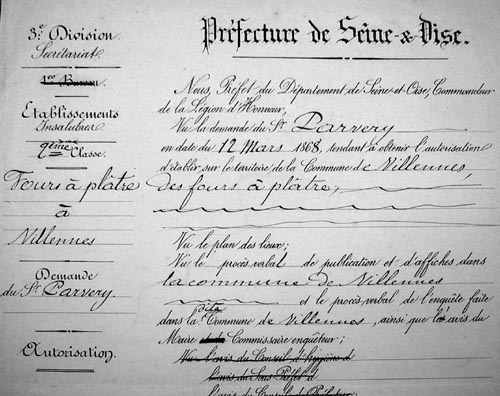 3.e Division.
Secrétariat.
1.er Bureau
Établissements
Insalubres
2ème Classe.
Fours à plâtre
à
Villennes
Demande
du Sr. Parvery.
Autorisation.
Préfecture de Seine-&-Oise.
Nous, Préfet du Département de Seine et Oise, Commandeur
de la Légion d'Honneur,
Vu la demande du Sr. Parvery
en date du 12 Mars 1868, tendant à obtenir l'autorisation
d'établir sur le territoire de la Commune de Villennes,
des fours à plâtre,
Vu le plan des lieux;
Vu le procès verbal de publication et d'affiches dans
la commune de Villennes
et le procès verbal de l'enquête faite
dans la dite Commune de Villennes, ainsi que l'avis du
Maire Commissaire enquêteur;
Vu l'avis du Conseil d'hygiène d
l'avis du Sous Préfet d
l'avis du Conseil de Préfecture;